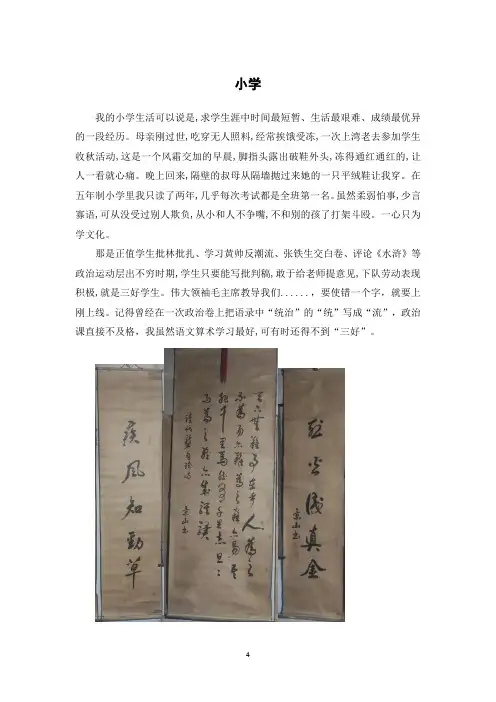 小学
我的小学生活可以说是,求学生涯中时间最短暂、生活最艰难、成绩最优异
的一段经历。母亲刚过世,吃穿无人照料,经常挨饿受冻,一次上湾老去参加学生
收秋活动,这是一个风霜交加的早晨,脚指头露出破鞋外头,冻得通红通红的,让
人一看就心痛。晚上回来,隔壁的叔母从隔墙抛过来她的一只平绒鞋让我穿。在
五年制小学里我只读了两年,几乎每次考试都是全班第一名。虽然柔弱怕事,少言
寡语,可从没受过别人欺负,从小和人不争嘴,不和别的孩了打架斗殴。一心只为
学文化。
那是正值学生批林批孔、学习黄帅反潮流、张铁生交白卷、评论《水浒》等
政治运动层出不穷时期,学生只要能写批判稿,敢于给老师提意见,下队劳动表现
积极,就是三好学生。伟大领袖毛主席教导我们......，要使错一个字，就要上
刚上线。记得曾经在一次政治卷上把语录中“统治”的“统”写成“流”，政治
课直接不及格，我虽然语文算术学习最好,可有时还得不到“三好”。
烈火識真金
天下無難事在乎人為之
不為易亦難為之難亦易吾
非千里馬然有千里志旦旦
而為之終亦成騏驥
疾風知勁草
4